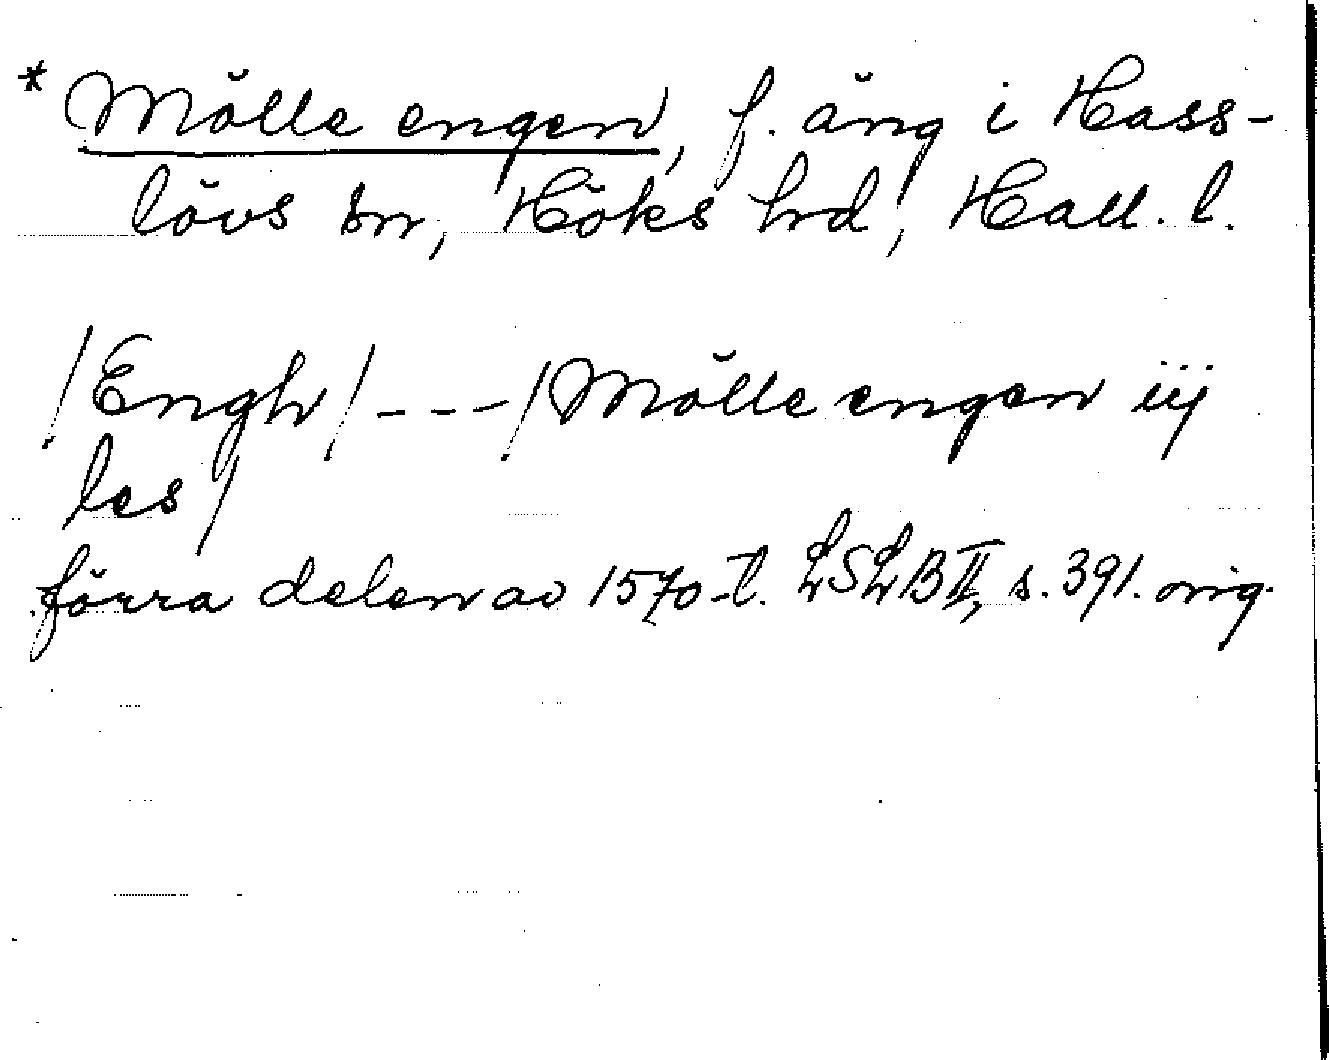 * Mölle engen, f. äng i Hass-
lövs sn, Höks hrd, Hall. l.
/Engh/---/Mölle engen iij
les/
förra delen av 1570-t. LSLB II, s. 391. orig.